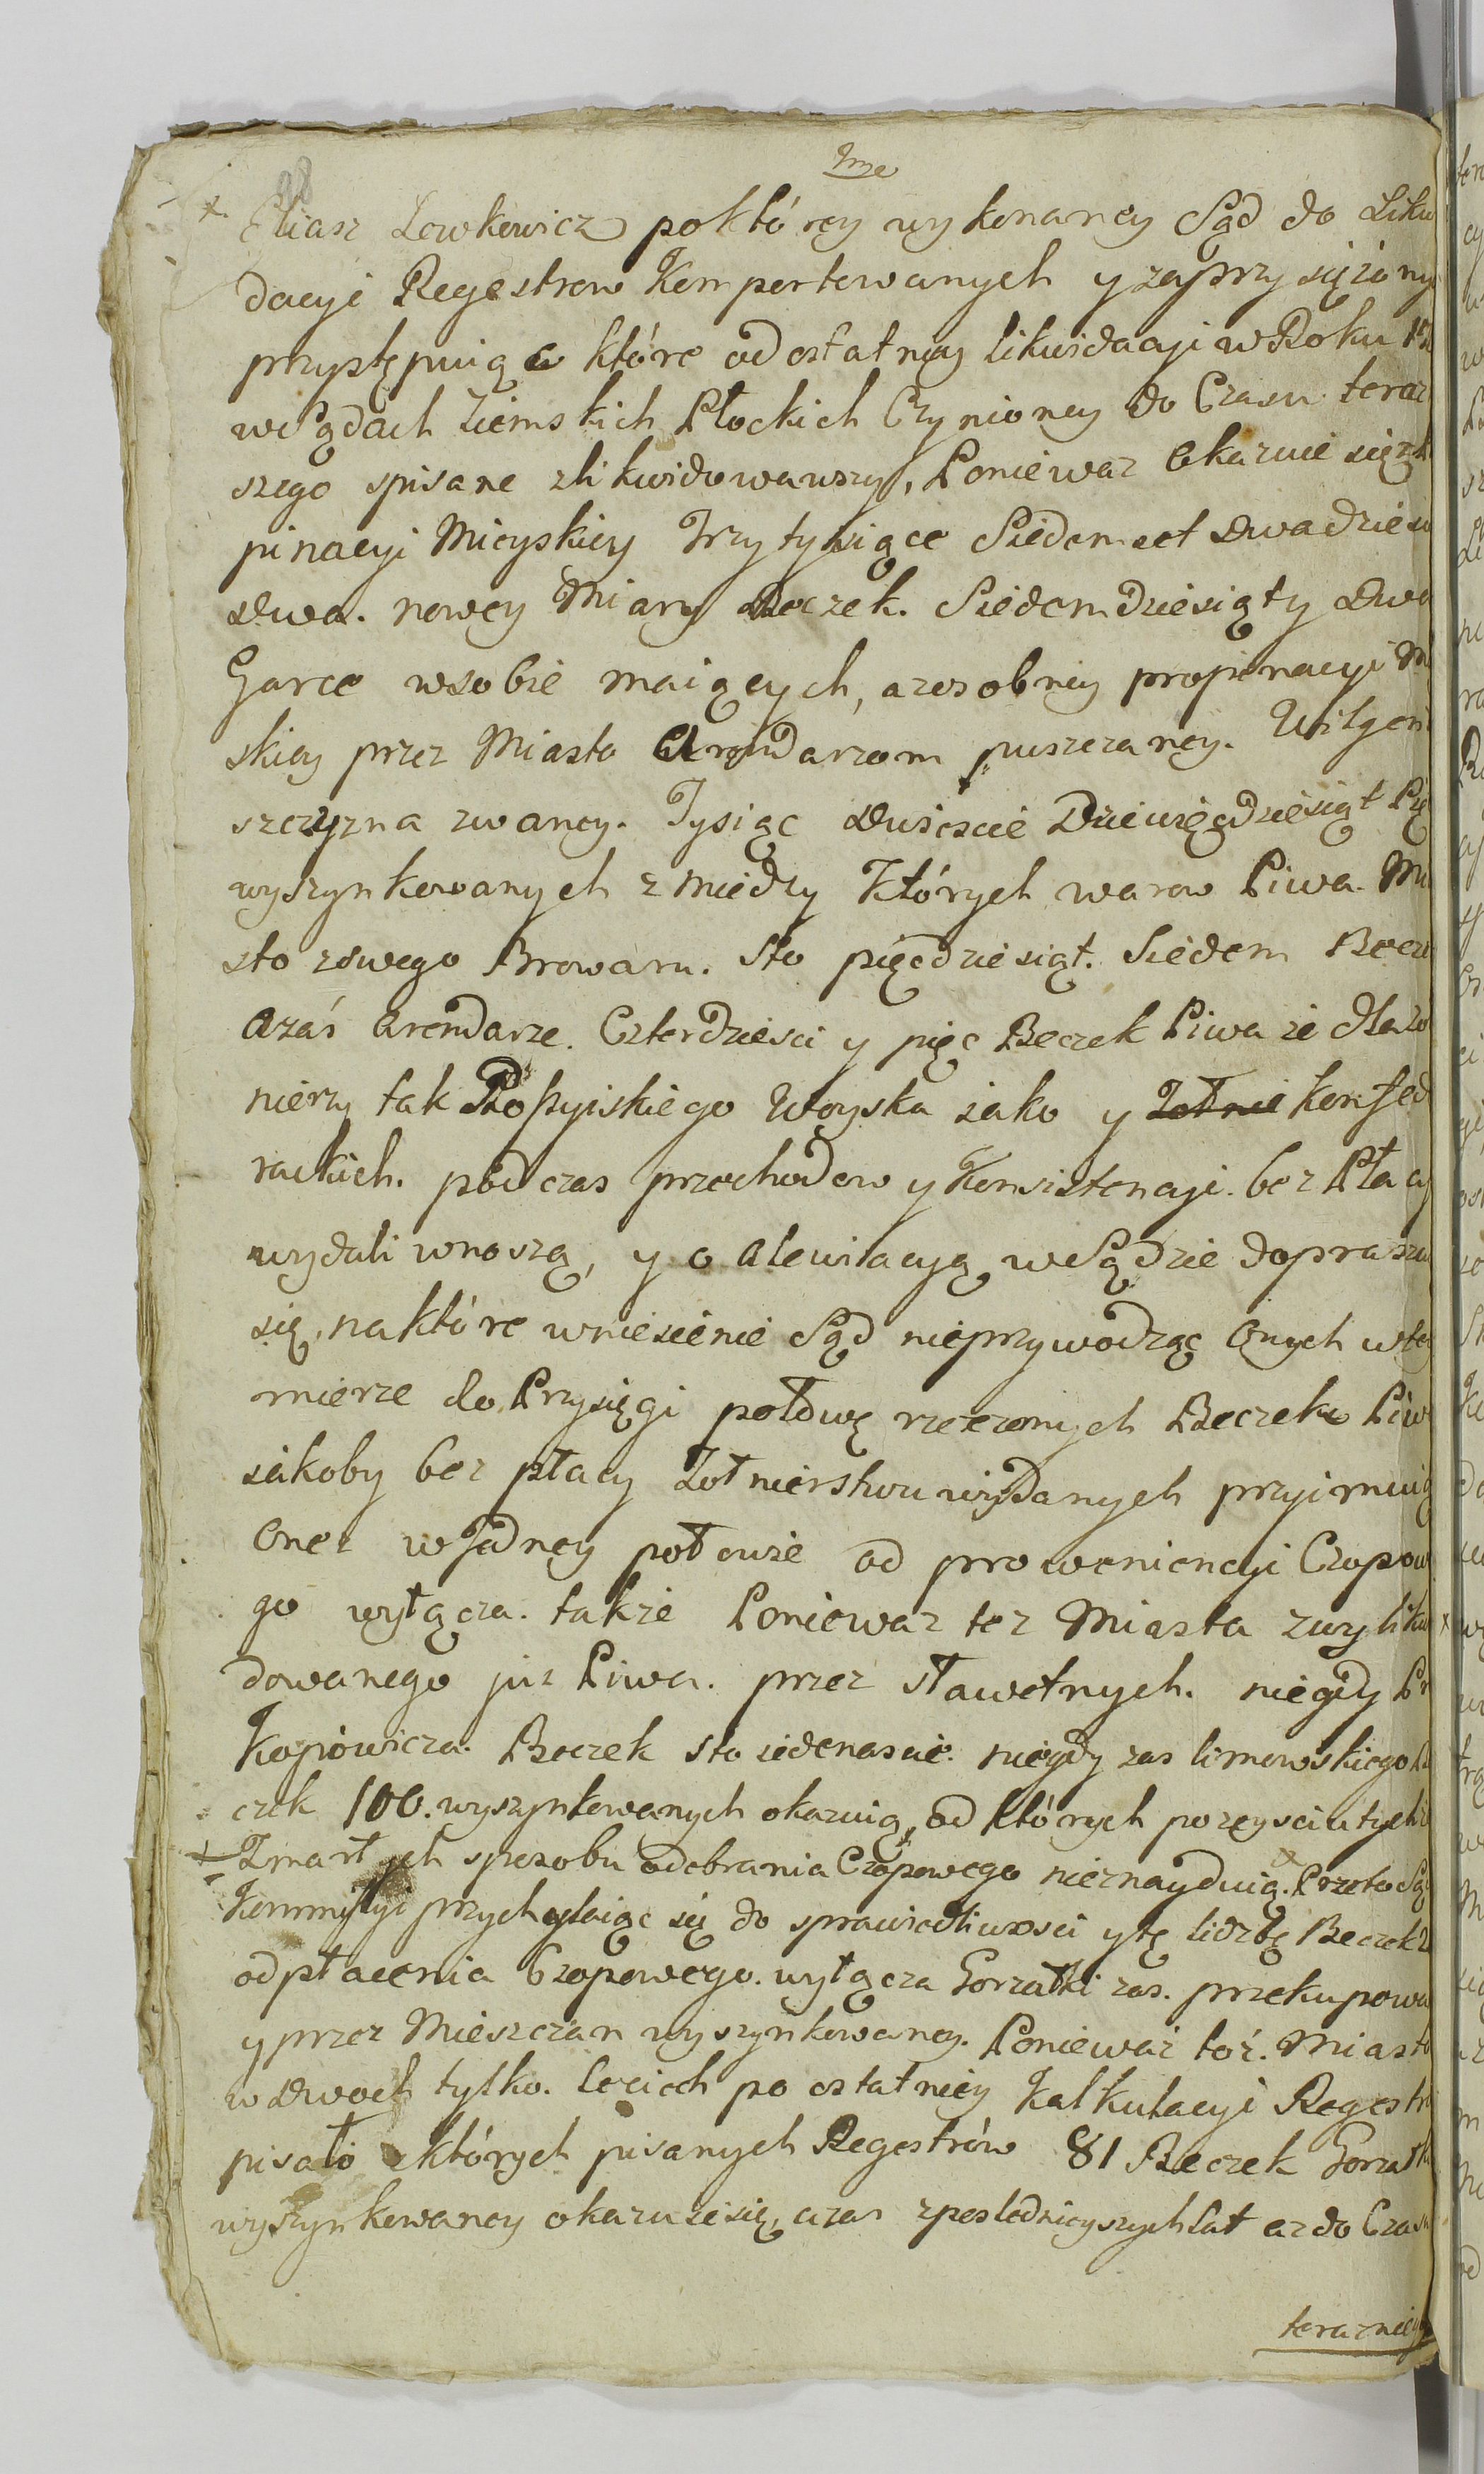 98
Eliasz Lewkowicz po którey wykonaney Sąd do Likw
dacyi Regestrow Komportowanych y zaprzysiężony
przystępuiąc które od ostatniey likwidacyi w Roku
w Sądach Ziemskich Płockich Czynioney do Czasu teraz
szego spisane zlikwidowawszy, Poniewaz Okazuie się
pinacyi Mieyskiey Trzy tysiące Siedemset Dwadzieś
Dwa. nowey Miary Beczek. Siedemdziesiąty Dwa
Garce w sobie maiących, a z osobney propinacyi M
skiey przez Miasto Arędarzom puszczaney. Wilgen
szczyzna zwaney. Tysiąc Dwieście Dziewięćdziesiąt Pię
wyszynkowanych z miedzy Których warow Piwa. Mia
sto z swego Browaru. Sto pięcdziesiąt. Siedem Becz
a zaś Arendarze. Czterdziesci y pięc Beczek Piwa że dla Zo
nierzy tak Rossyiskiego Woyska iako y Konfed
rackich. podczas przechodow y Konsystencyi. bez Płacy
wydali wnoszą, y o alewiacyą w Sądzie doprasza
się, na które wniesienie Sąd nieprzywodząc Onych w tey
mierze do Przysięgi połowę rzeczonych Beczek Piw
iakoby bez płacy Zołnierstwu wydanych przyimuią
Onez w Jedney połowie od proweniencyi Czopow
go wyłącza. także Poniewaz tez Miasta z wylikw
dowanego juz Piwa. przez sławetnych. niegdy Pr
Kopiowicza. Beczek sto iedenascie. niegdy zas limowskiego B
czek 100. wyszynkowanych okazuią, od których po zeysciu tychż
Zmarłych sposobu odebrania Czopowego nieznayduią. Przeto Są
Kommissyi przychylaiąc się do sprawiedliwosci y tę liczbę Beczek
od płacenia Czopowego. wyłącza Gorzałki zas. przekupowa
y przez Mieszczan wyszynkowaney. Poniewaź toż. Miasto
w Dwoch tylko. leciech po ostatniey Kalkulacyi Regestr
pisało z których pisanych Regestrów 81 Beczek Gorzałki
wyszynkowaney okazuie się, a zas z pośledniejszych Lat az do Czasu
teraznie